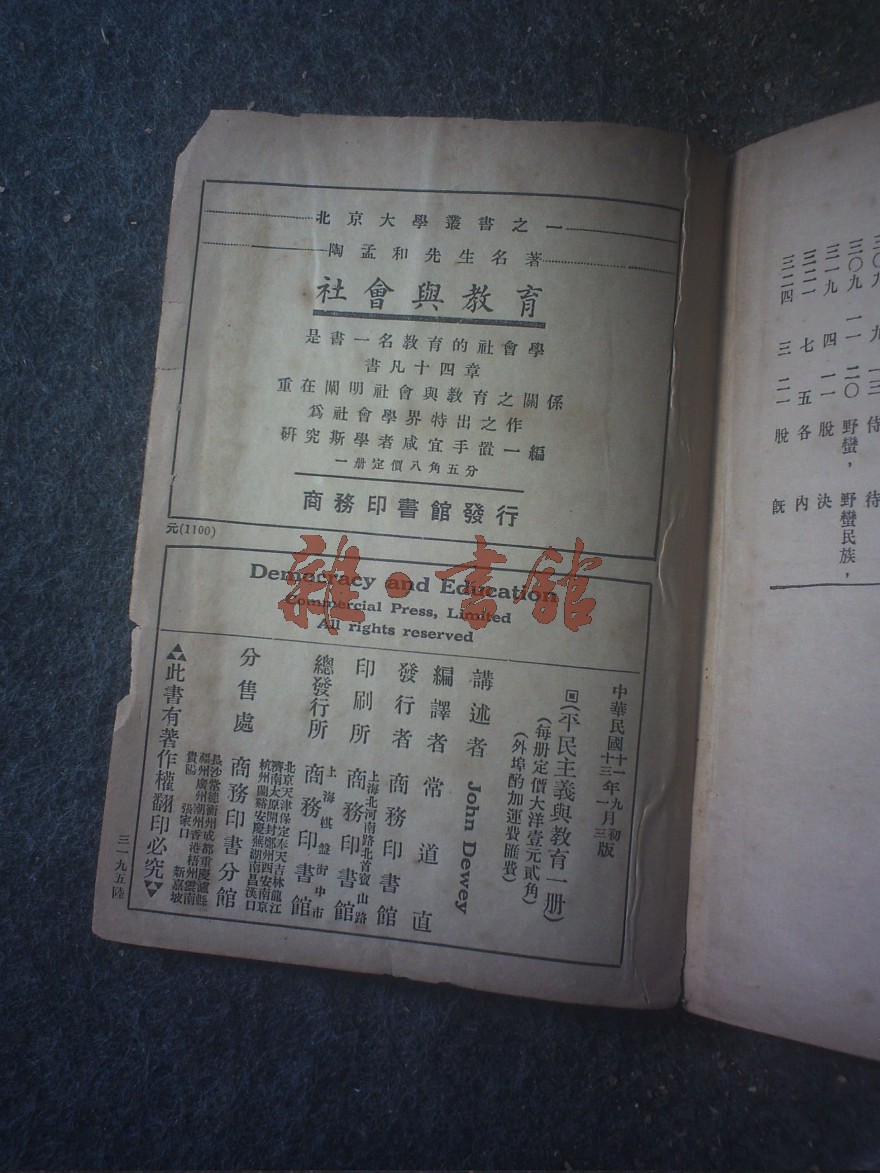 北京大學叢書之一
陶孟和先生名著
社會與教育
是書一名教育的社會學
書凡十四章
重在闡明社會與教育之關係
爲社會學界特出之作
研究斯學者咸宜手置一編
一册定價八角五分
商務印書館發行
元(1100)
雜·書館
Democracy and Education
Commercial Press, Limited
All rights reserved
中華民國十一年九月初版
十三年一月三版
回(平民主義與教育一册)
(每册定價大洋壹元貳角)
(外埠酌加運費匯費)
講述者 John Dewey
編譯者 常道直
發行者 商務印書館
上海北河南路北首寶山路
印刷所 商務印書館
上海棋盤街中市
總發行所 商務印書館
北京天津保定奉天吉林龍江
濟南太原開封鄭州西安南京
杭州蘭谿安慶蕪湖南昌漢口
分售處 商務印書分館
長沙常德衡州成都重慶瀘縣
福州廣州潮州香港梧州雲南
貴陽 張家口 新嘉坡
此書有著作權翻印必究
三一九五陸
三〇九 九 一三 侍 待
三〇九 一一 二〇 野蠻, 野蠻民族,
三一九 四 一一 脫 決
三二一 七 五 各 內
三二四 三 二一 脫 既